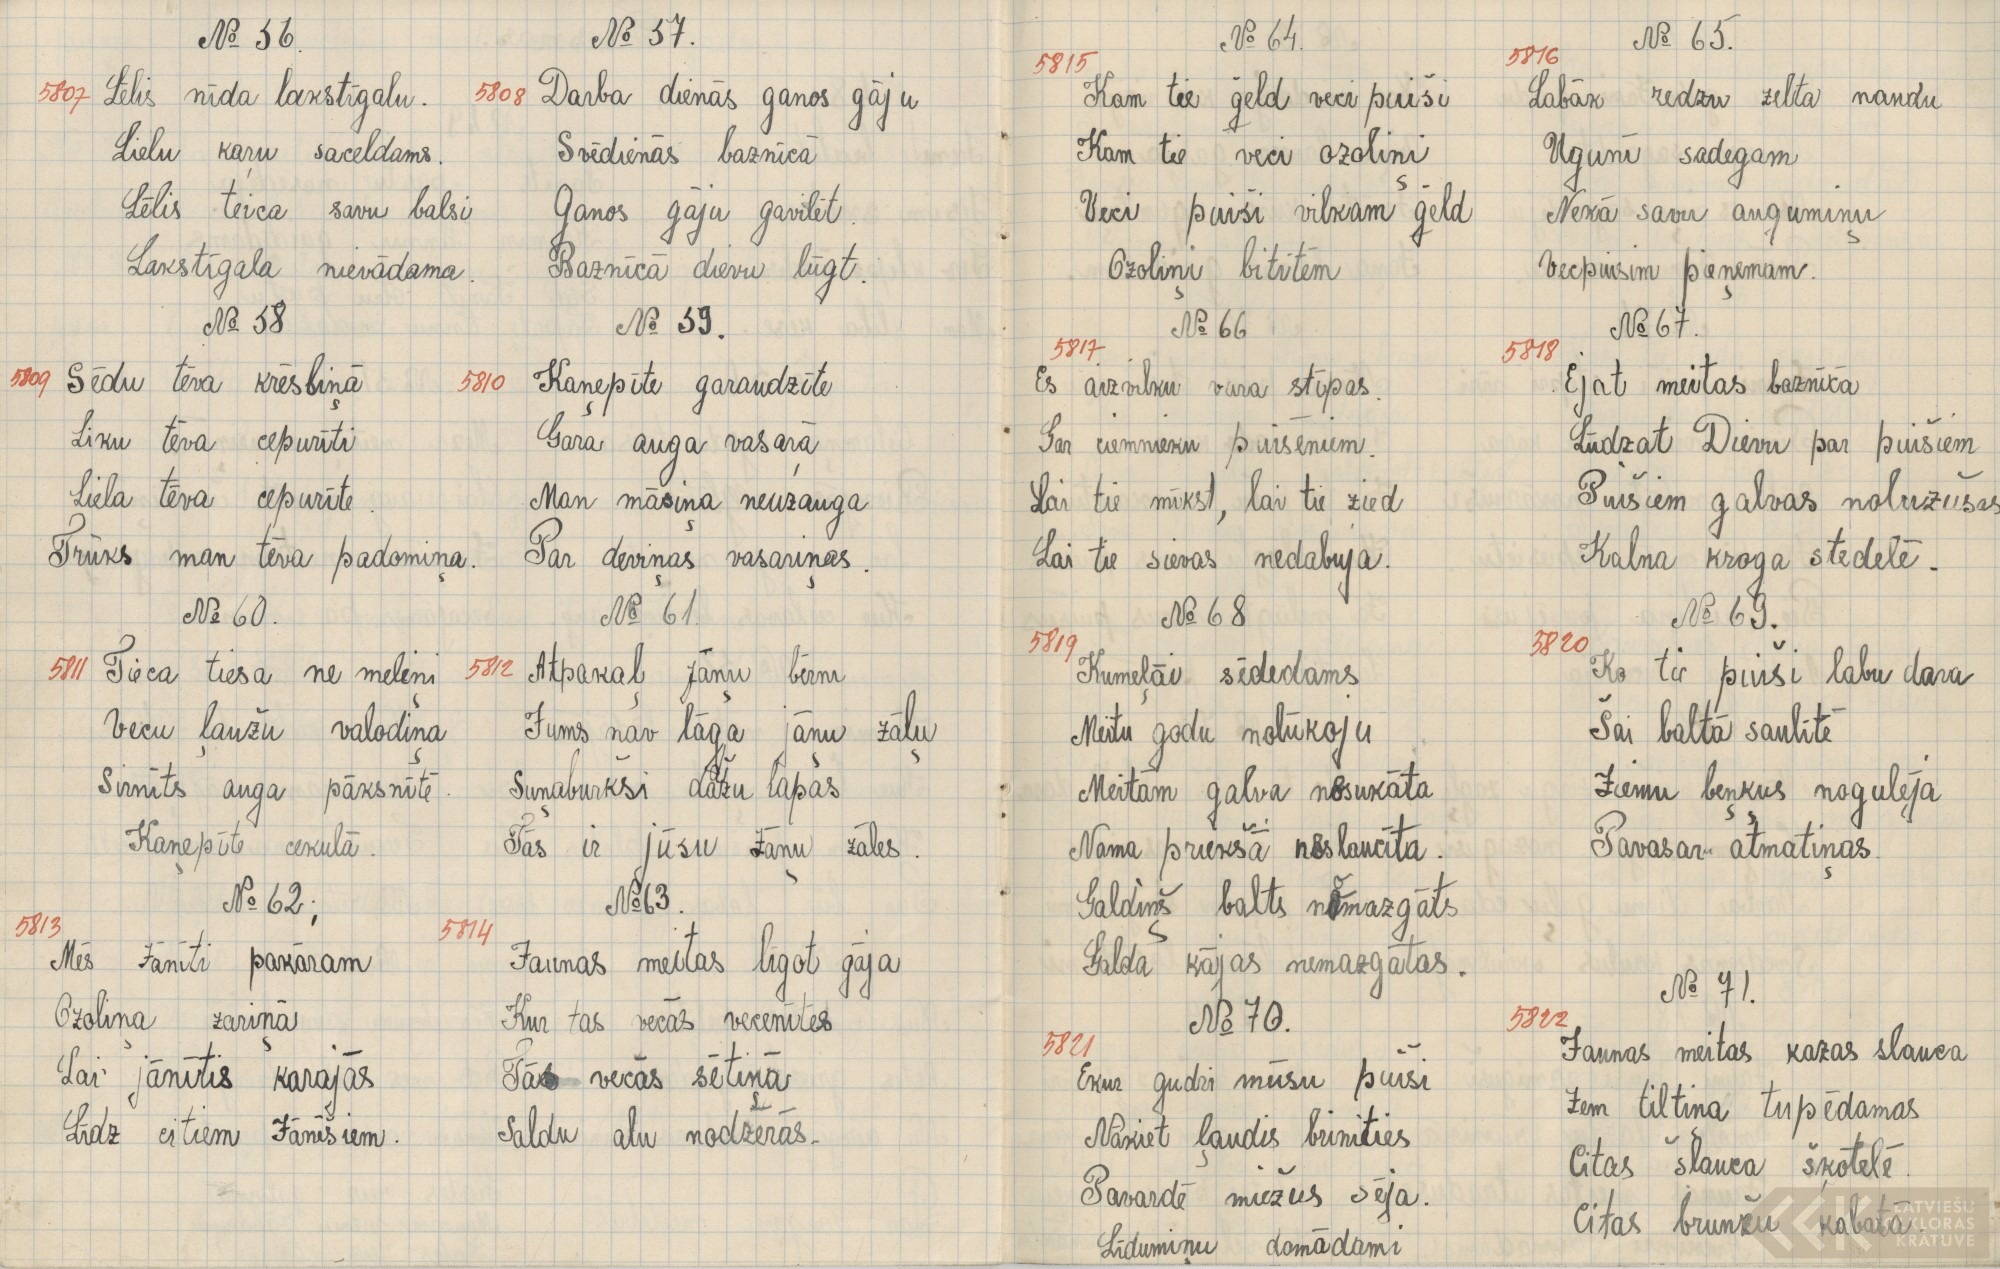 № 56.
5807 Lēlis nīda lakstīgalu.
Lielu kaŗu saceldams.
Lēlis teica savu balsi
Lakstīgala nievādama.
№ 57.
5808 Darba dienās ganos gāju
Svēdienās baznīcā
Ganos gāju gavilēt.
Baznīcā dievu lūgt.
№ 58
5809 Sēdu tēva krēsliņā
Liku tēva cepurīti
Liela tēva cepurīte.
Trūks man tēva padomiņa.
№ 59.
5810 Kaņepīte garaudzīte
Gara auga vasaŗā
Man māsiņa neuzauga
Par deviņas vasariņas.
№ 60.
5811 Tieca tiesa ne meleņi
Vecu ļaužu valodiņa
Sirnīts auga pāksnītē.
Kaņepīte cekulā.
№ 61.
5812 Atpakaļ jāņu bērni
Jums nav lāga jāņu zāļu
Suņaburkši dažu lapas
Tās ir jūsu Jāņu zāles.
№ 62.
5813
Mēs Jānīti pakāram
Ozoliņa zariņā
Lai jānītis karājās
Līdz citiem Jānīšiem.
№ 63.
5814
Jaunas meitas līgot gāja
Kur tas vecās vecenītes
Tās vecās sētiņā
Saldu alu nodzērās.
№ 64.
5815
Kam tie ģeld veci puiši
Kam tie veci ozoliņi
Veci puiši vilkam ģeld
Ozoliņi bitītēm
№ 65.
5816
Labāk redzu zelta naudu
Ugunī sadegam
Nekā savu augumiņu
Vecpuisim pieņemam.
№ 66
5817
Es aizvilku vara stīpas.
Gar ciemnieku puišēniem.
Lai tie mīkst, lai tie zied
Lai tie sievas nedabuja.
№ 67.
5818
Ejat meitas baznīcā
Lūdzat Dievu par puišiem
Puišiem galvas noluzušas
Kalna kroga stedelē.
№ 68
5819
Kumeļāi sēdedams
Meitu godu nolūkoju
Meitām galva nesukāta
Nama priekšā neslaucīta.
Galdiņš balts nomazgāts
Galda kājas nemazgātas.
№ 69.
5820
Ko tie puiši labu dara
Šai baltā saulītē
Ziemu beņķus nogulēja
Pavasari atmatiņas.
№ 70.
5821
Ekur gudri mūsu puiši
Nākiet ļaudis brinīties
Pavardē miežus sēja.
Līdumiņu domādami
№ 71.
5822
Jaunas meitas kazas slauca
Zem tiltiņa tupēdamas
Citas slauca škotelē.
Citas brunžu kabatā.
LATVIEŠU
FOLKLORAS
KRĀTUVE